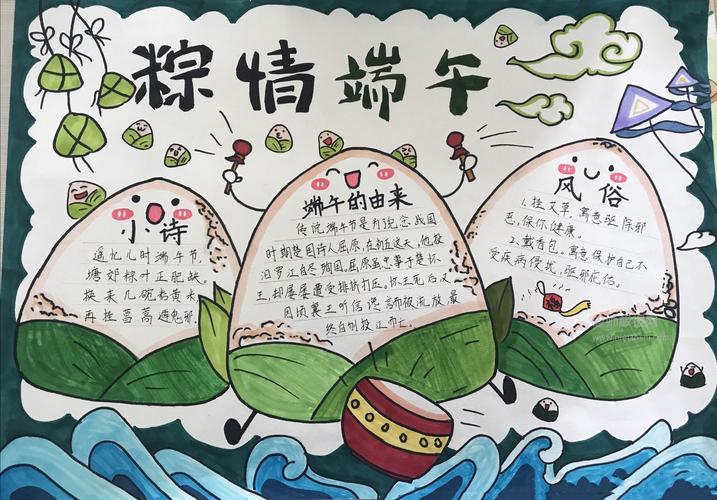 粽情端午
小诗
遥忆儿时端午节,
塘郊粽叶正肥缺。
换来几碗 黄米,
再挂菖蒿 避邪。
端午的由来
传说端午节是为纪念战国
时期楚国诗人屈原,在初五这天,他投
汨罗江自尽殉国。屈原虽忠事于楚怀
王,却屡屡遭受排挤打压。怀王死后又
因顷襄王听信谗 被流放,最
终自刎投江而亡。
风俗
1.挂艾草,寓意驱除邪
恶,保你健康。
2.戴香包,寓意保护自己不
受疾病侵扰,驱邪庇佑。